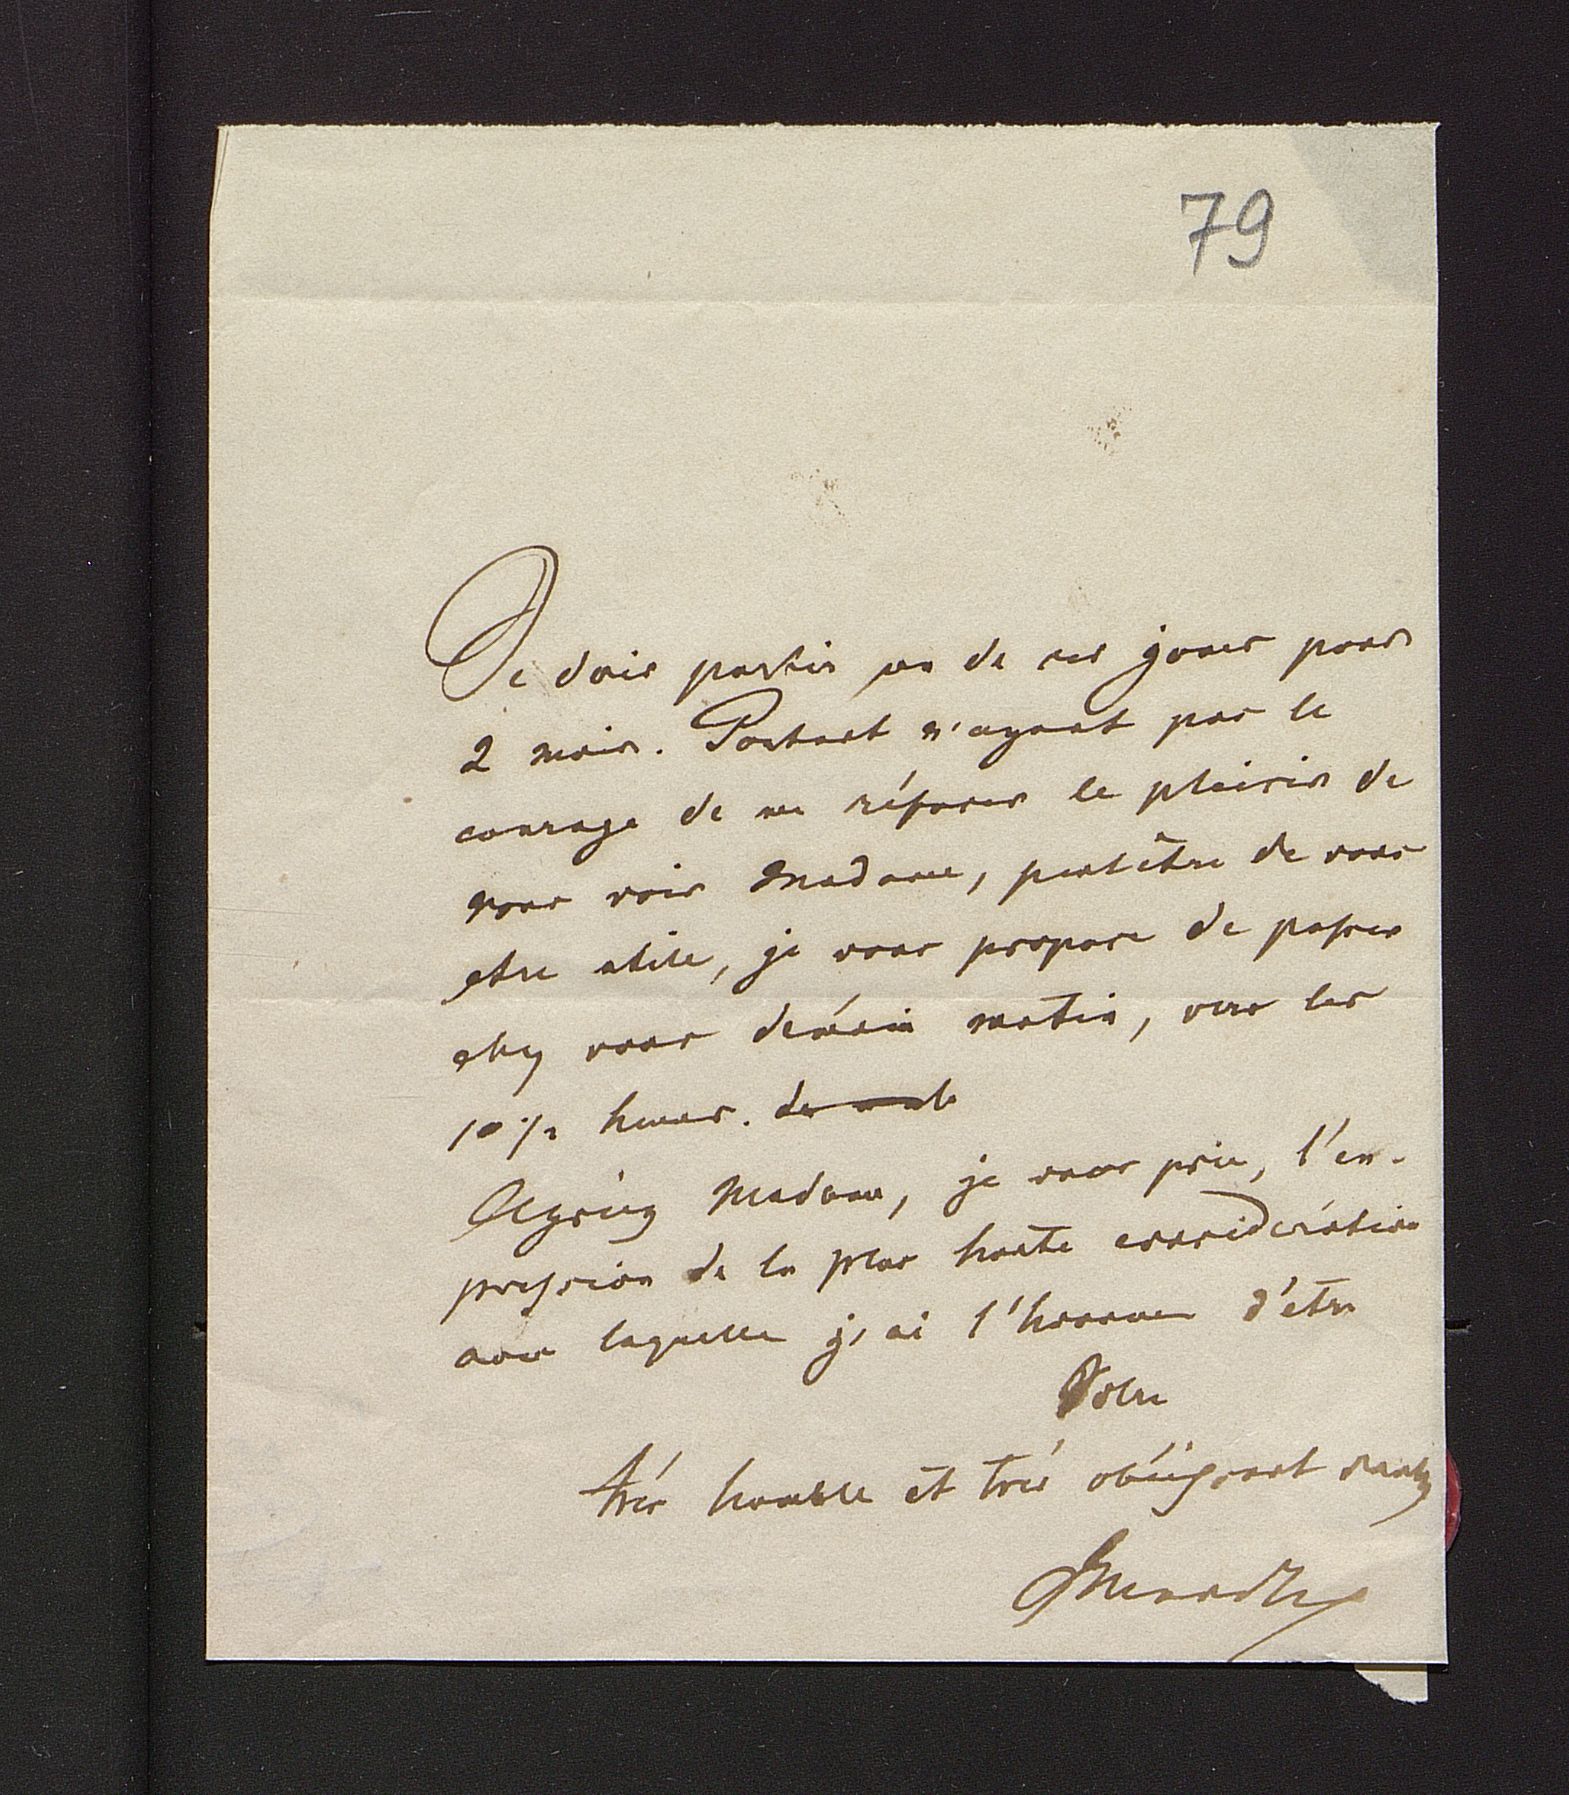 79
Je dois partir un de ces jours pour
2 mois. Partant n'ayant pas le
courage de me réfuser le plaisir de
vous voir Madame, peutêtre de vous
etre utile, je vous propose de passer
chez vous demain matin, vers les
10 1/2 heures. de
Agréez Madame, je vous prie, l'ex-
pression de la plus haute considération
avec laquelle j'ai l'honneur d'etre
Votre
très humble et très obéissant